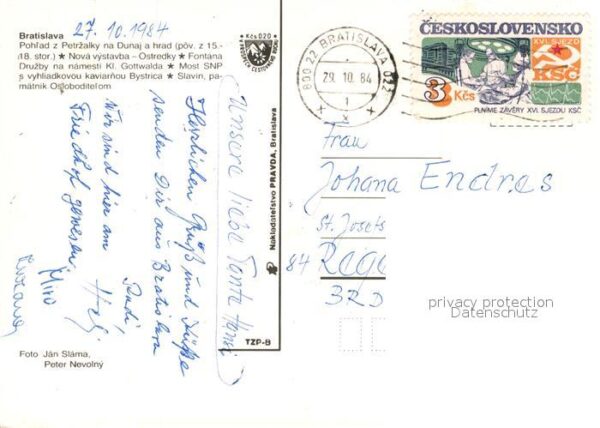 Bratislava
27.10.1984
Pohľad z Petržalky na Dunaj a hrad (pôv. z 15.-
18. stor.) ★ Nová výstavba – Ostredky ★ Fontána
Družby na námestí Kl. Gottwalda ★ Most SNP
s vyhliadkovou kaviarňou Bystrica ★ Slavín, pa-
mätník Osloboditeľom
Kčs 0,20
Unsere liebe Tante Hansi
Herzlichen Gruß und Küße
senden Dir aus Bratislava
Rudi,
Wir sind hier am
Friedhof gewesen.
Miro
Foto Ján Sláma,
Peter Nevolný
Nakladateľstvo PRAVDA, Bratislava
TZP-B
800 22 BRATISLAVA 022
29.10.84
1
x x x
ČESKOSLOVENSKO
XVI. SJEZD
KSČ
3 Kčs
PLNÍME ZÁVĚRY XVI. SJEZDU KSČ
Frau
Johana Endres
St. Josefs
84 Rege
BRD
privacy protection
Datenschutz